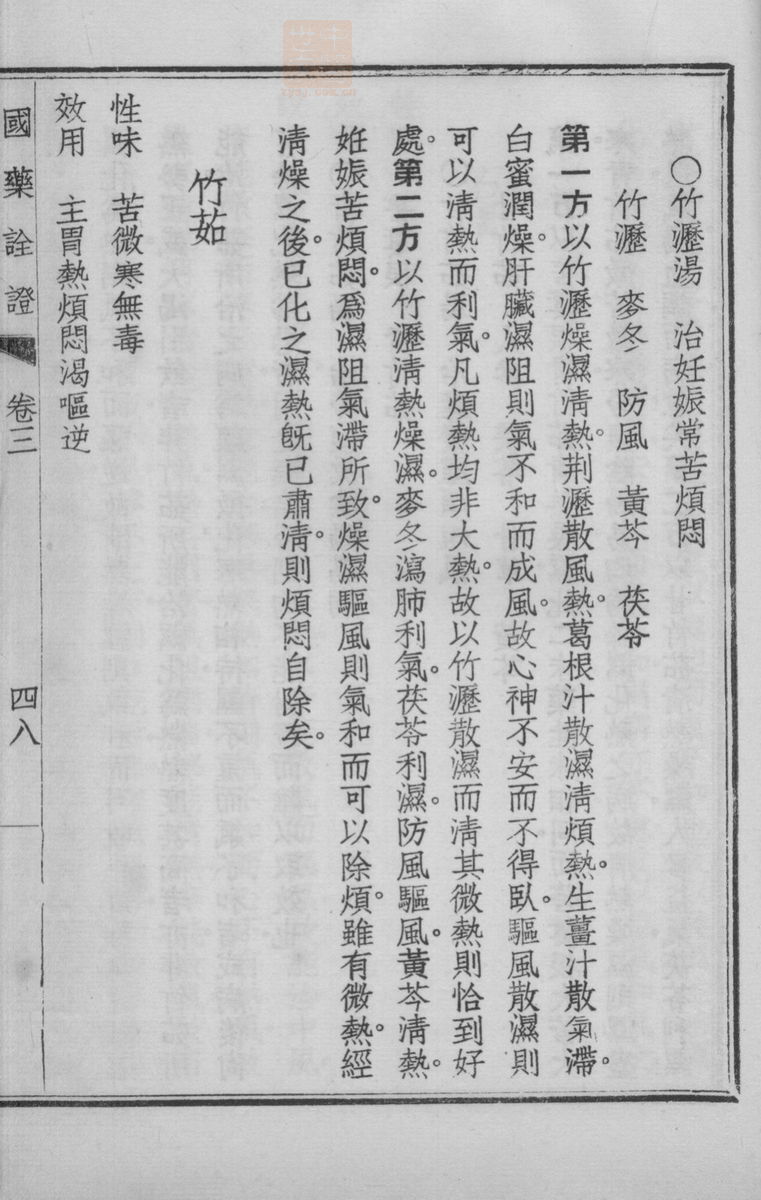 ○竹瀝湯　治妊娠常苦煩悶
竹瀝　麥冬　防風　黃芩　茯苓
第一方以竹瀝燥濕清熱。荆瀝散風熱。葛根汁散濕清煩熱。生薑汁散氣滯。
白蜜潤燥。肝臟濕阻則氣不和而成風。故心神不安而不得臥。驅風散濕則
可以清熱而利氣。凡煩熱均非大熱。故以竹瀝散濕而清其微熱則恰到好
處。第二方以竹瀝清熱燥濕。麥冬瀉肺利氣。茯苓利濕。防風驅風。黃芩清熱。
妊娠苦煩悶。爲濕阻氣滯所致。燥濕驅風則氣和而可以除煩。雖有微熱。經
清燥之後。已化之濕熱既已肅清。則煩悶自除矣。
竹茹
性味　苦微寒無毒
效用　主胃熱煩悶渴嘔逆
國藥詮證　卷三　四八
zysj.com.cn